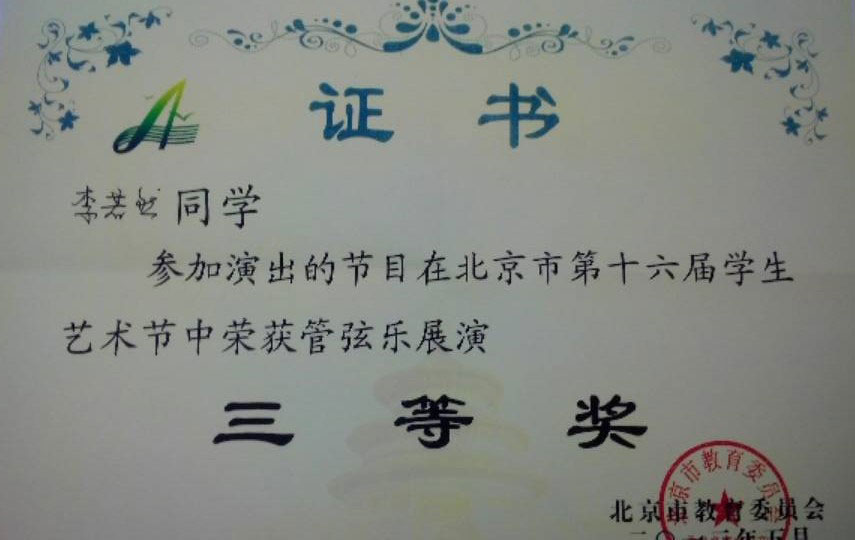 证书
李若然同学
参加演出的节目在北京市第十六届学生
艺术节中荣获管弦乐展演
三等奖
北京市教育委员会